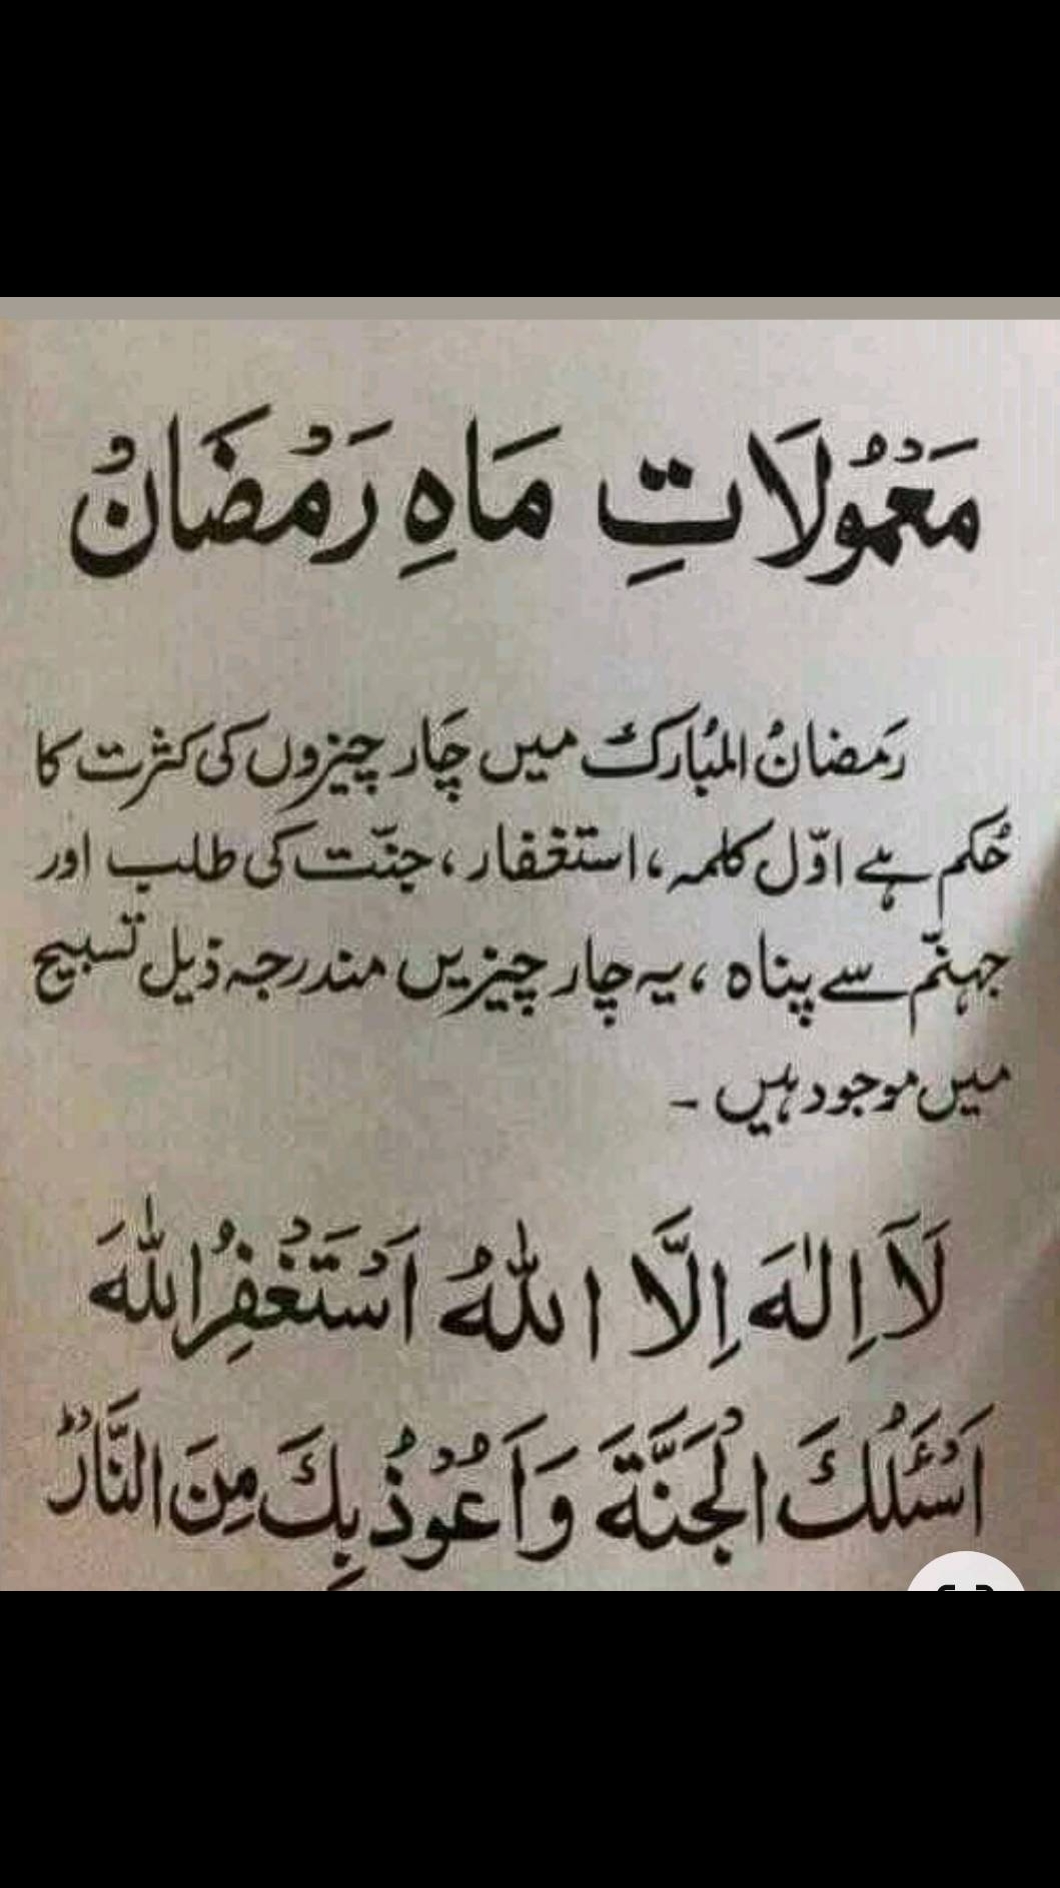 مَعْمُولَاتِ مَاہِ رَمْضَانُ
رَمضانُ المبُارک میں چَار چیزوں کی کثرت کا
حُکم ہے اوّل کلمہ، استغفار، جنّت کی طلب اور
جہنّم سے پناہ، یہ چار چیزیں مندرجہ ذیل تسبیح
میں موجود ہیں ۔
لَآ اِلٰهَ اِلَّا اللّٰهُ اَسْتَغْفِرُ اللّٰهَ
اَسْئَلُكَ الْجَنَّةَ وَاَعُوْذُ بِكَ مِنَ النَّارْ ؕ